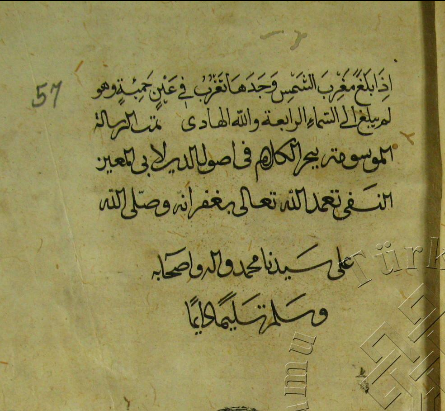 57
إذا بلغ مغرب الشمس وجدها تغرب في عين حمئة وهو
لم يبلغ الى السماء الرابعة والله الهادى تمت الرسالة
الموسومة ببحر الكلام فى اصول الدين لابى المعين
النسفى تغمد الله تعالى بغفرانه وصلى الله
على سيدنا محمد واله واصحابه
وسلم تسليما دايما
Türk